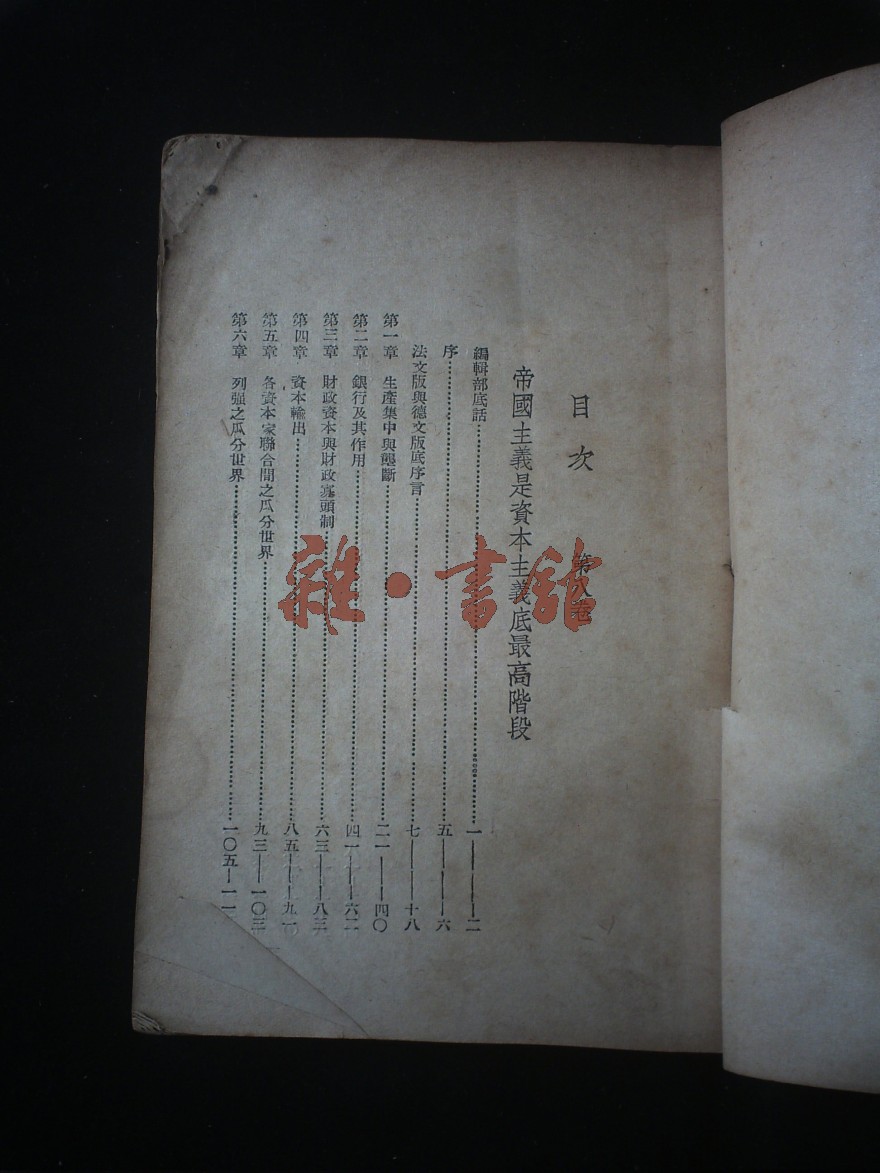 目次 第八卷
帝國主義是資本主義底最高階段
編輯部底話 一——二
序 五——六
法文版與德文版底序言 七——十八
第一章 生產集中與壟斷 二一——四〇
第二章 銀行及其作用 四一——六二
第三章 財政資本與財政寡頭制 六三——八三
第四章 資本輸出 八五——九一
第五章 各資本家聯合間之瓜分世界 九三——一〇三
第六章 列强之瓜分世界 一〇五——一一
雜·書舘